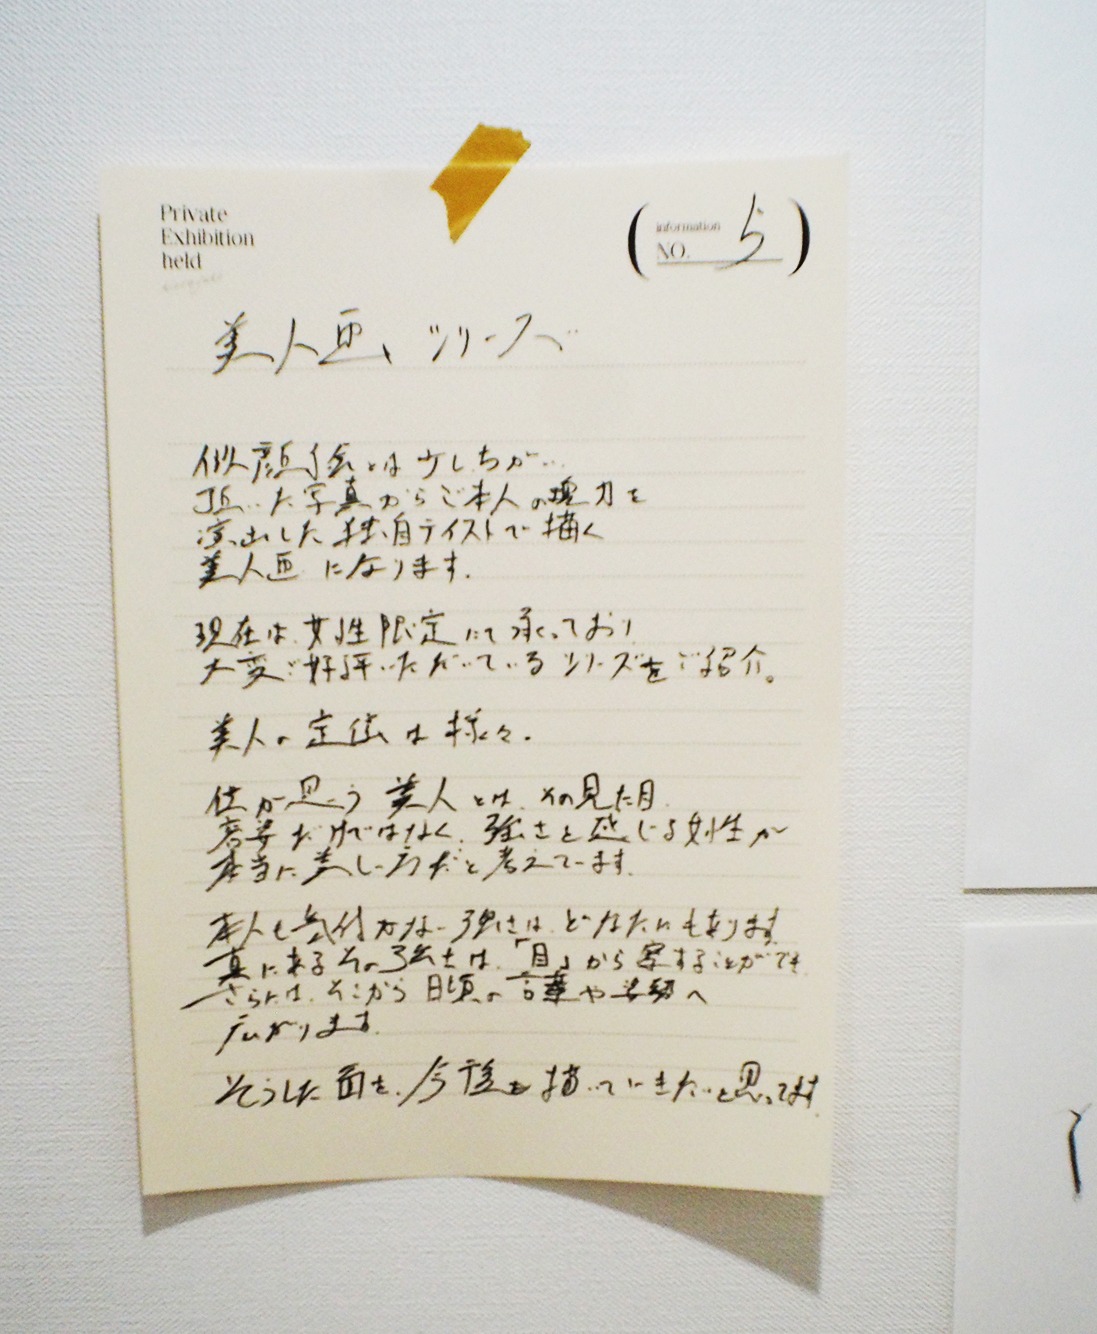 Private
Exhibition
held
information
NO. 5
美人画、シリーズ
似顔絵とは少しちがい
頂いた写真からご本人の魅力を
演出した独自テイストで描く
美人画になります。
現在は、女性限定にて承っており
大変ご好評いただいているシリーズをご紹介。
美人の定義は様々。
僕が思う美人とは、その見た目
容姿だけではなく、強さを感じる女性が
本当に美しい方だと考えています。
本人も気付かない強さは、どなたにもあります
真にあるその強さは、「目」から察することができ
さらには、そこから日頃の言葉や姿勢へ
広がります。
そうした面を、今後も描いていきたいと思ってます